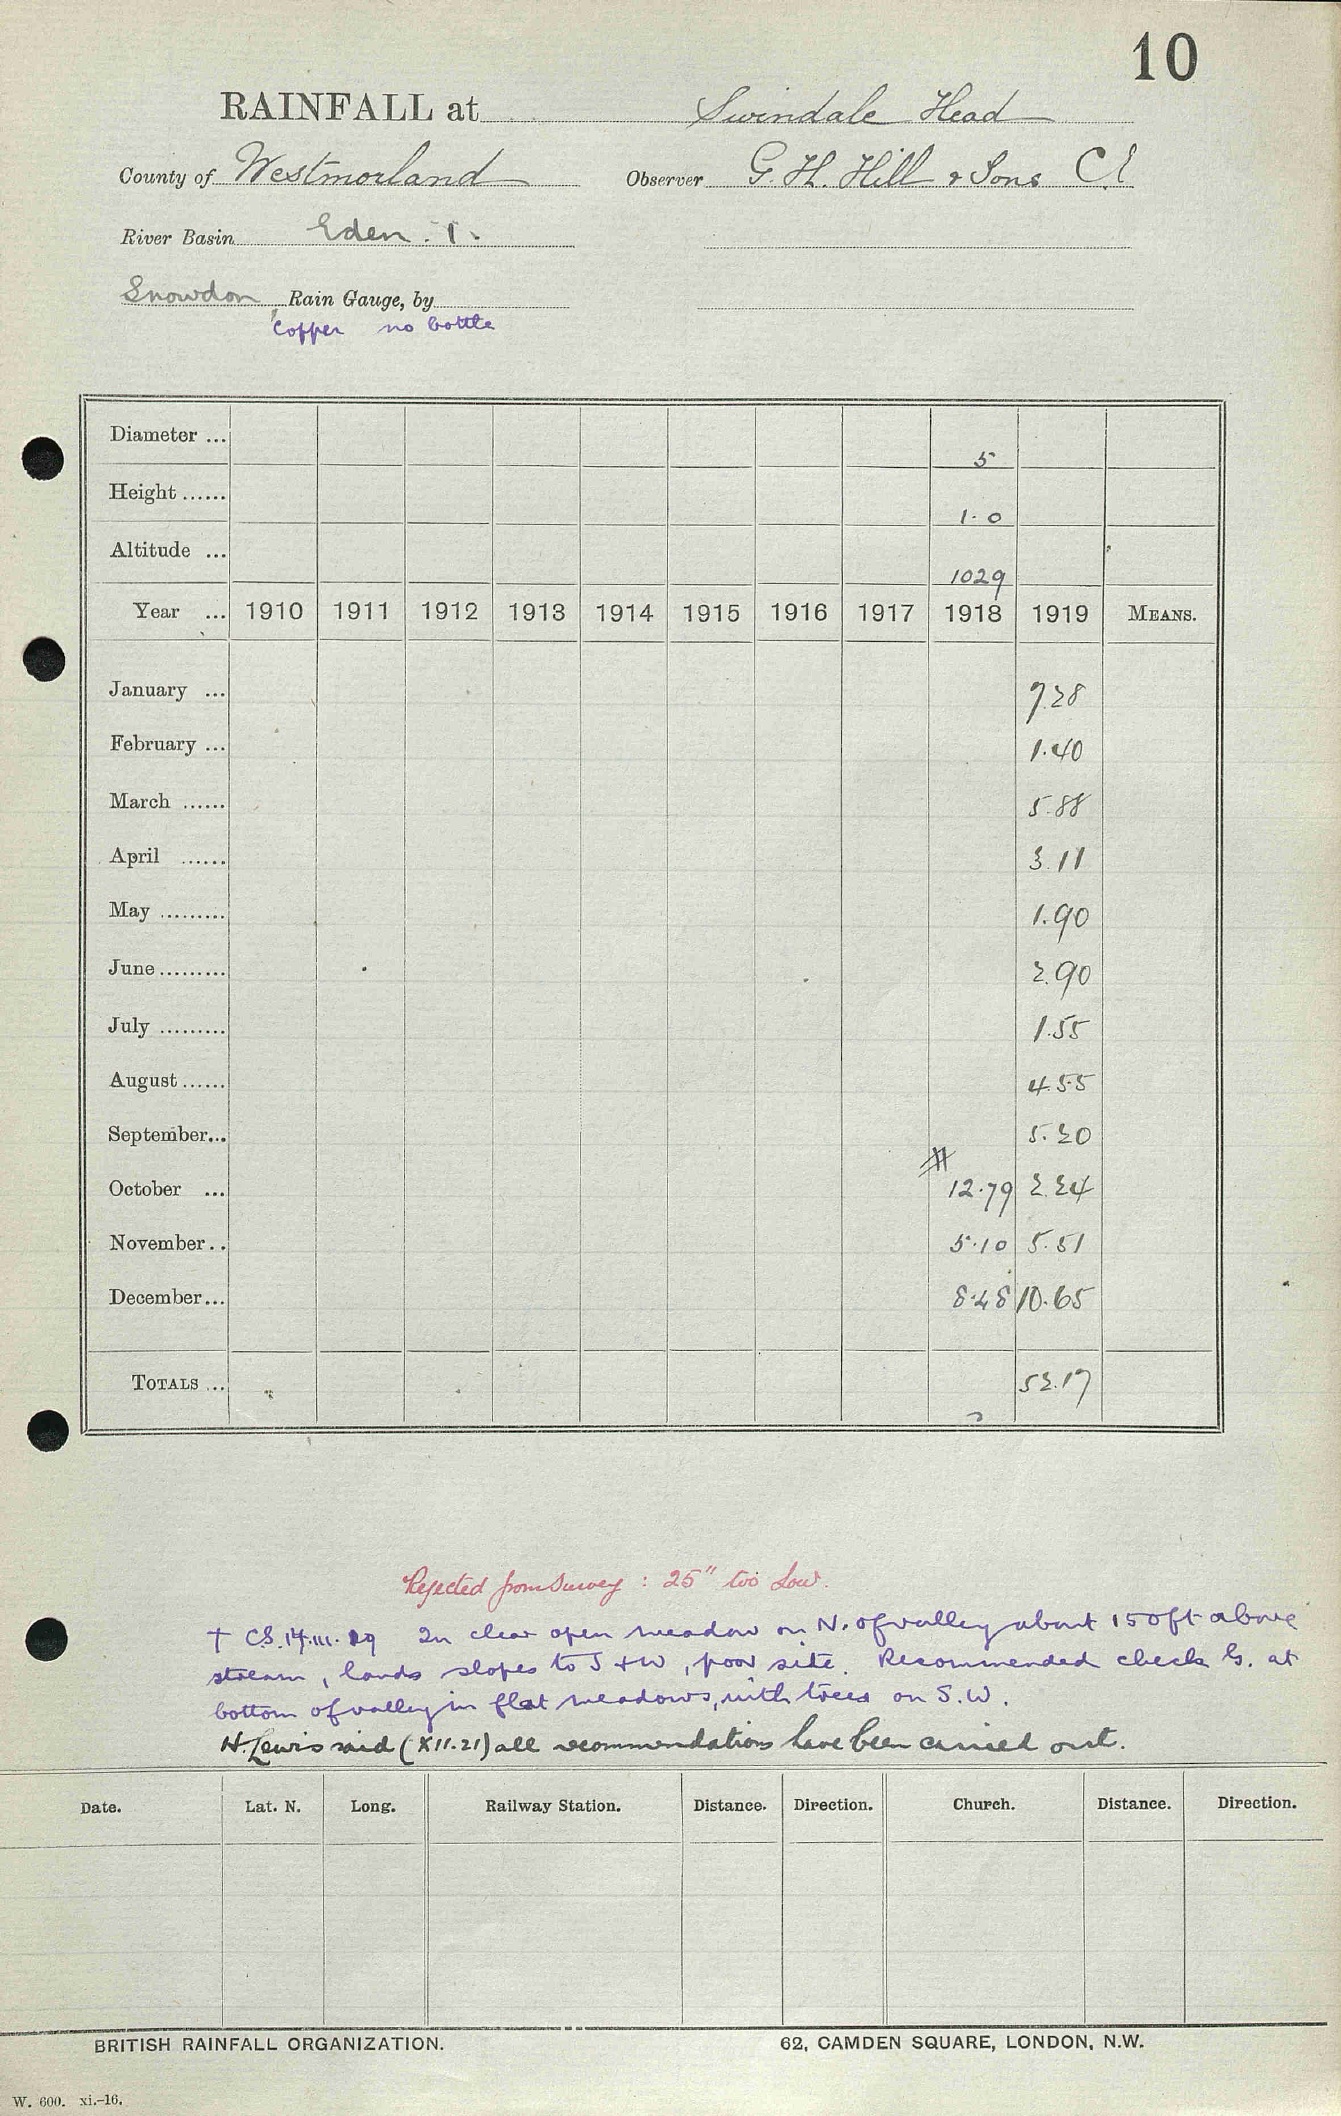 10
RAINFALL at Swindale Head
County of Westmorland Observer G. H. Hill & Sons C.E
River Basin Eden. 1.
Snowdon Rain Gauge, by
Copper no bottle
Diameter ... 5
Height ...... 1.0
Altitude ... 1029
Year ... 1910 1911 1912 1913 1914 1915 1916 1917 1918 1919 MEANS.
January ... 7.28
February ... 1.40
March ...... 5.88
April ...... 3.11
May ......... 1.90
June ......... 2.90
July ......... 1.55
August ...... 4.55
September... 5.20
October ... 12.79 2.24
November.. 5.10 5.51
December... 8.48 10.65
TOTALS ... 52.17
Rejected from Survey : 25" too low.
+ C.S. 14.iii.19 In clear open meadow on N. of valley about 150ft above
stream, lands slopes to S & W, poor site. Recommended check G. at
bottom of valley in flat meadows, with trees on S.W.
H. Lewis said (XII.21) all recommendations have been carried out.
Date. Lat. N. Long. Railway Station. Distance. Direction. Church. Distance. Direction.
BRITISH RAINFALL ORGANIZATION. 62, CAMDEN SQUARE, LONDON, N.W.
W. 600. xi.-16.